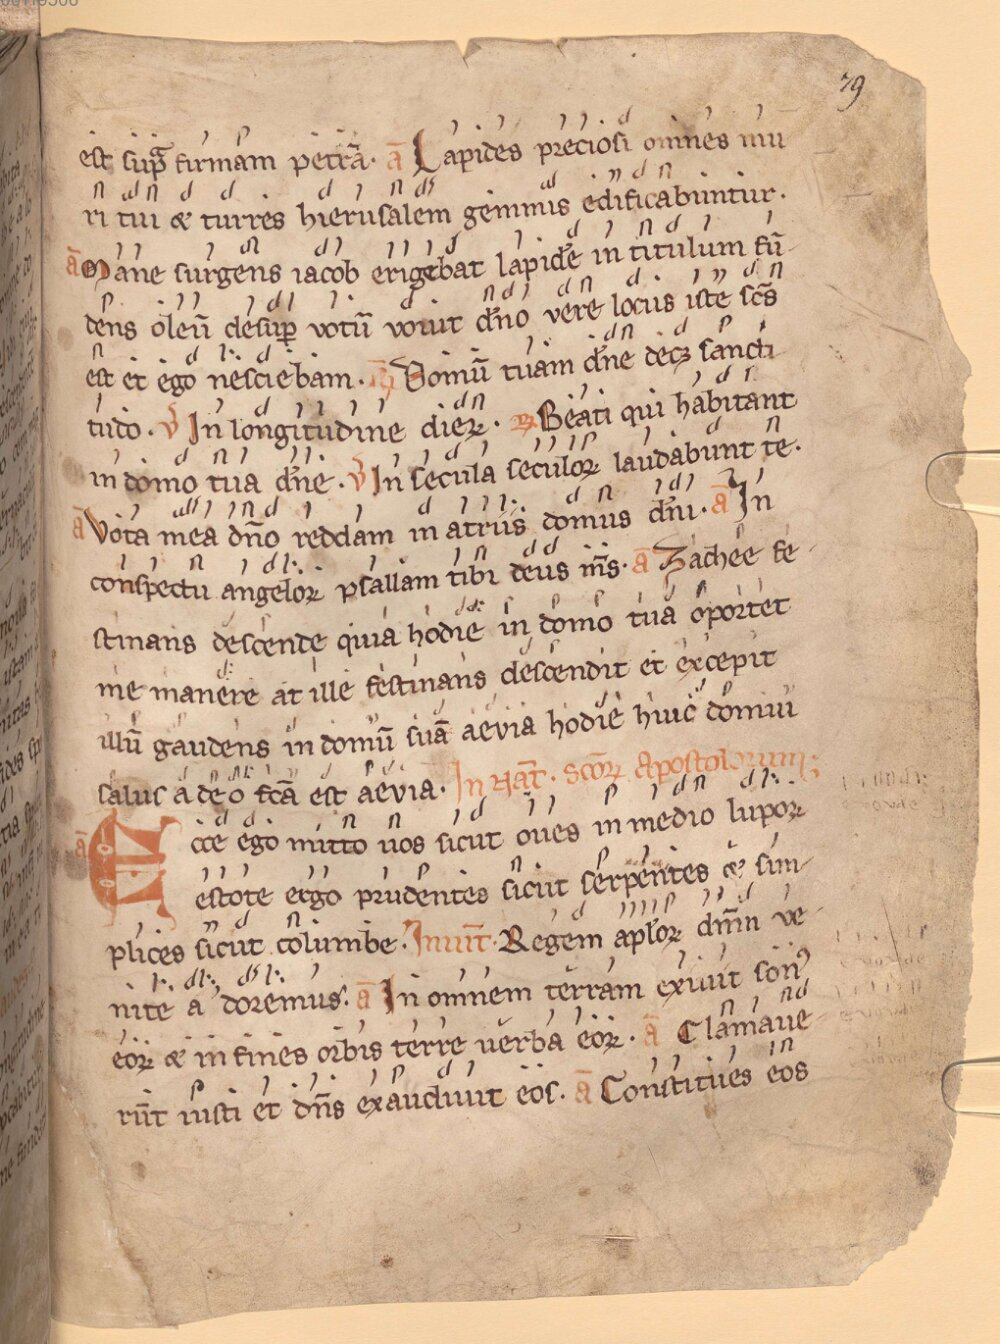 79
est sup̄ firmam petrā. ā Lapides preciosi omnes mu
ri tui & turres hierusalem gemmis edificabuntur.
ā Mane surgens iacob erigebat lapidē in titulum fū
dens oleū desup̱ votū vovit dn̄o vere locus iste scs̄
est et ego nesciebam. R̄ Domū tuam dn̄e decꝫ sancti
tudo. v̄ In longitudine dieꝝ. ꝶ Beati qui habitant
in domo tua dn̄e. v̄ In secula seculoꝝ laudabunt te.
ā Vota mea dn̄o reddam in atriis domus dn̄i. ā In
conspectu angeloꝝ psallam tibi deus m̄s. ā Zachee fe
stinans descende quia hodie in domo tua oportet
me manere at ille festinans descendit et excepit
illū gaudens in domū suā aevia hodie huic domui
salus a deo fc̄a est aevia. In Nat̄. Sc̄oꝝ Apostolorum;
ā Ecce ego mitto uos sicut oues in medio lupoꝝ
estote ergo prudentes sicut serpentes & sim
plices sicut columbe. Inuit̄. Regem apl̄oꝝ dn̄m ve
nite adoremus. ā In omnem terram exiuit sonꝰ
eoꝝ & in fines orbis terre uerba eoꝝ. ā Clamaue
rūt iusti et dn̄s exaudiuit eos. ā Constitues eos